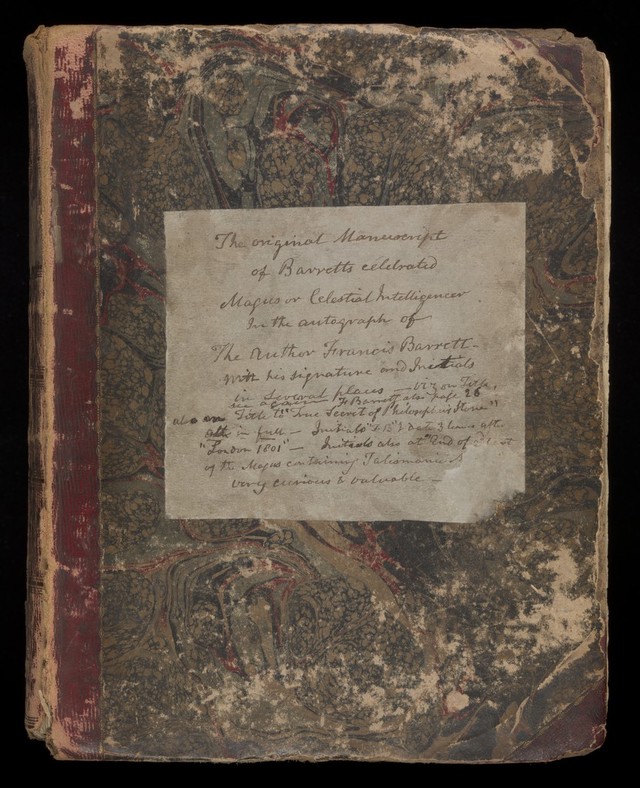 The original Manuscript
of Barretts celebrated
Magus or Celestial Intelligencer
In the autograph of
The Author Francis Barrett -
with his signature and Initials
in several places — viz on Title,
F Barrett also page 26
also on Title to "True Secret of Philosophers Stone"
in full — Initials "F.B" at 3 lines after
"London 1801" — Initials also at end of
of the Magus containing Talismanic
very curious & valuable —